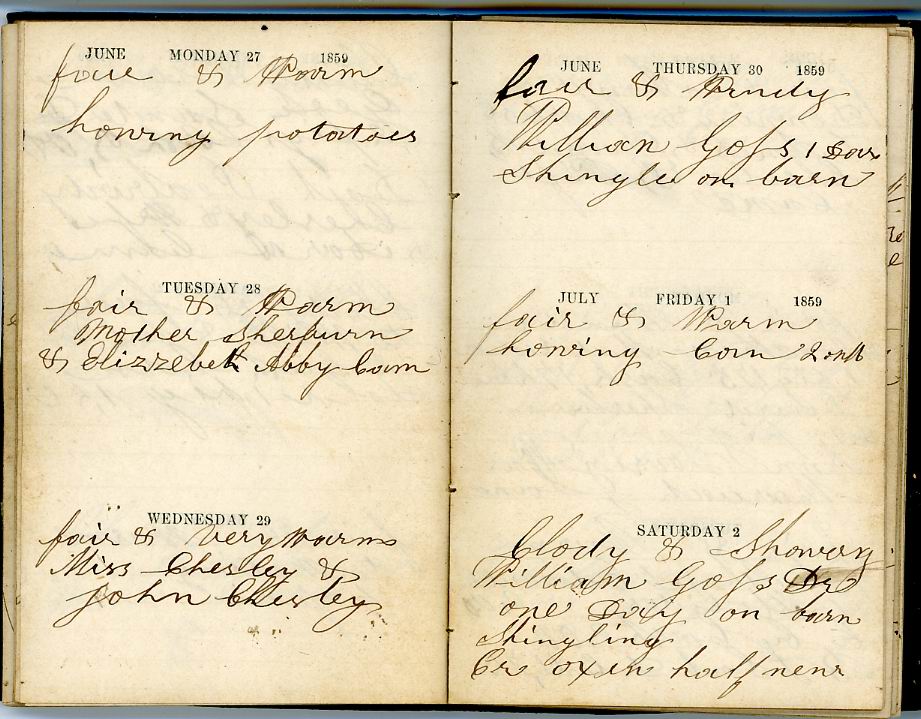 JUNE MONDAY 27 1859
faie & Warm
howing potatoes
TUESDAY 28
fair & Warm
Mother Sherburn
& Elizzebeth Abby Cam
WEDNESDAY 29
fair & very Warm
Miss Chesley &
John Chesley
JUNE THURSDAY 30 1859
fair & Windy
William Gofs 1 Day
Shingle on barn
JULY FRIDAY 1 1859
fair & Warm
howing Corn
SATURDAY 2
Clody & Showery
William Gofs Dr
one Day on barn
Shingling
Cr oxen half